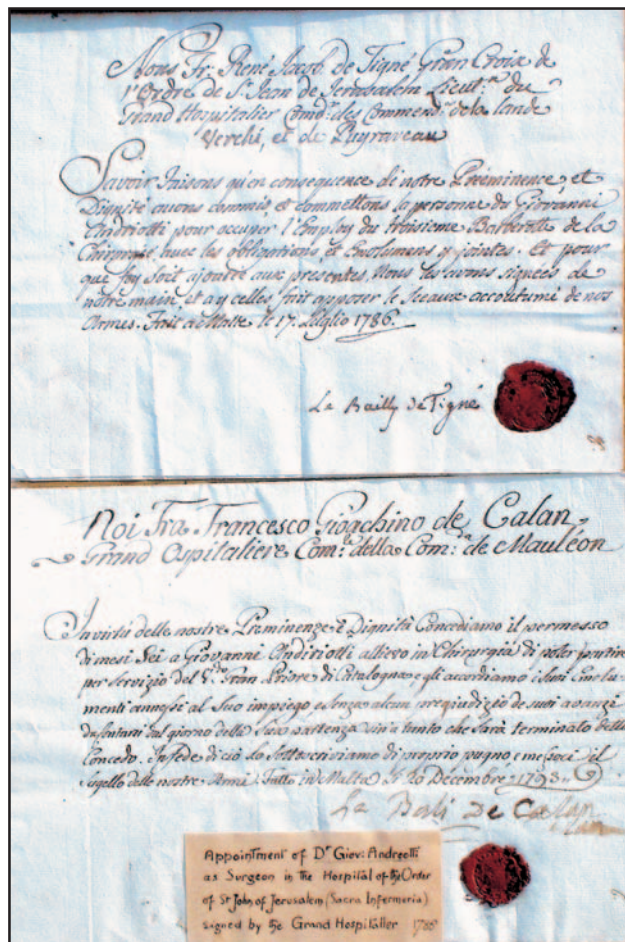 Nous Fr. René Jacob de Tigné Gran Croix de
l'Ordre de S. Jean de Jerusalem Lieut.ᵗ du
Grand Hospitalier Comdʳ des Commendˢ de la lande
Verchi, et de Puyraveau
Savoir faisons qu'en consequence de notre Préeminence, et
Dignité avons commis, et commettons la personne du Giovanni
Andriotti pour occuper l'Employ du troisieme Barberotte de la
Chirurgie, avec les obligations, et Emolumens y jointes. et pour
que foy soit ajoutée aux presentes, Nous les avons signées de
notre main, et a ycelles, fait apposer le Sceaux accoutumé de nos
Armes. Fait a Malte le 17. Luglio 1786.
Le Bailly de Tigné
Noi Fra Francesco Gioachino de Calan
Grand Ospitaliere Com.ʳ della Com.ᵃ de Mauléon
In virtù delle nostre Preminenze e Dignità Concediamo il permesso
di mesi Sei a Giovanni Andriotti allievo in Chirurgia di poter partire
per servizio del Gran Priore di Catalogna, e gli accordiamo i suoi Emolu-
menti annessi al Suo impiego e senza alcun pregiudizio de suoi avanzi
dal giorno della Sua partenza sin'a tanto che Sarà terminato
Concedo. In fede di ciò la Sottoscriviamo di proprio pugno e messoci il
Sugello delle nostre Armi. Fatto in Malta li 20 Decembre 1793.
Le Bali De Calan
Appointment of Dʳ Giov: Andreotti
as Surgeon in the Hospital of the Order
of St John of Jerusalem (Sacra Infermeria)
signed by the Grand Hospitaller 1786